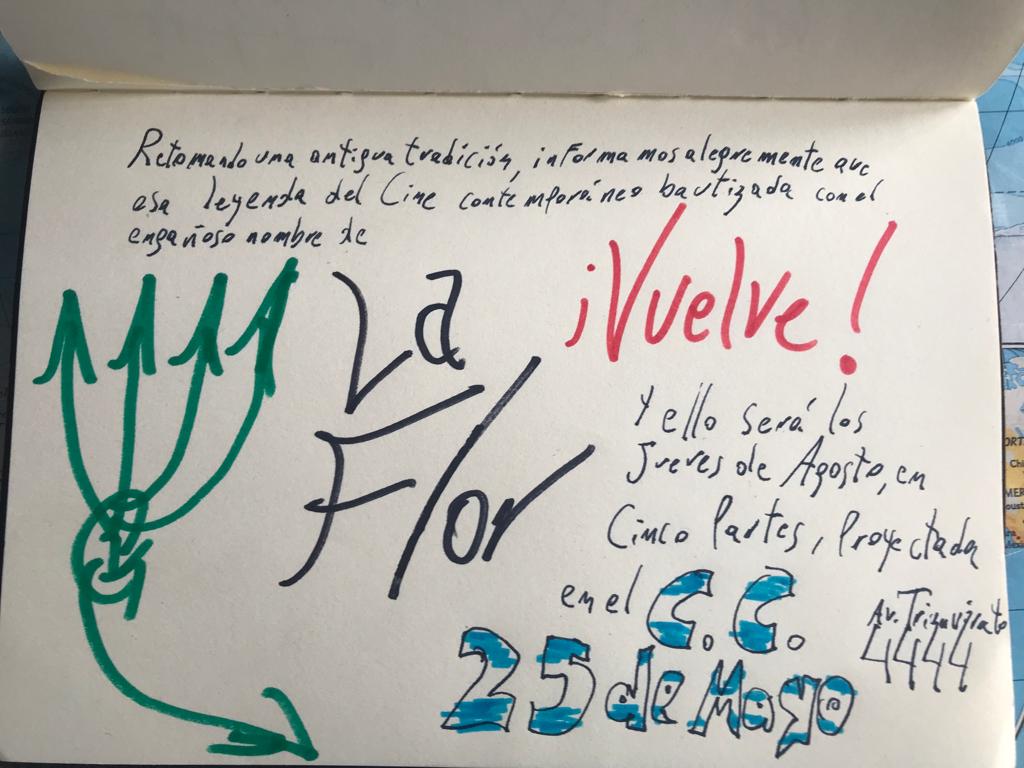 Retomando una antigua tradición, informamos alegremente que
esa leyenda del Cine contemporáneo bautizada con el
engañoso nombre de
La
Flor
¡Vuelve!
Y ello será los
jueves de Agosto, en
Cinco Partes, Proyectada
en el C.C.
25 de Mayo
Av. Triunvirato
4444